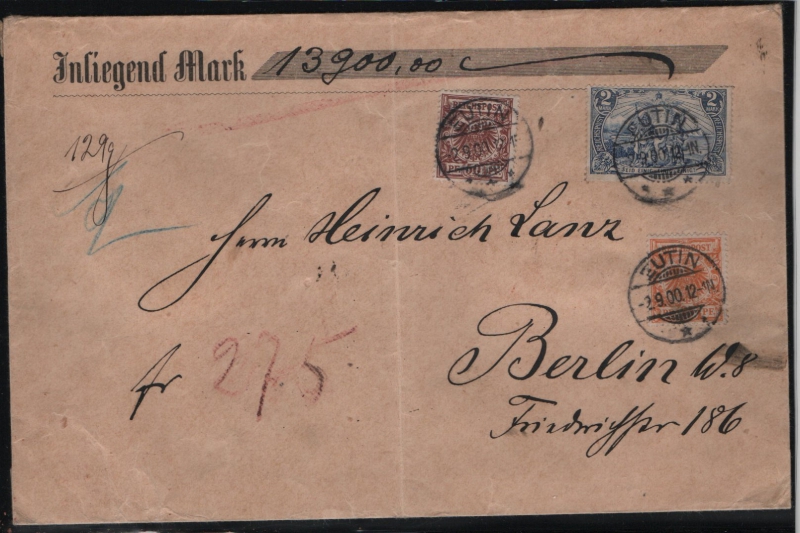 Inliegend Mark 13900,00
129g
EUTIN
-2.9.00.12-1N
REICHSPOST
EUTIN
-2.9.00.12-1N
2 2
EUTIN
-2.9.00.12-1N
Herrn Heinrich Lanz
fr 275
Berlin W.8
Friedrichstr 186